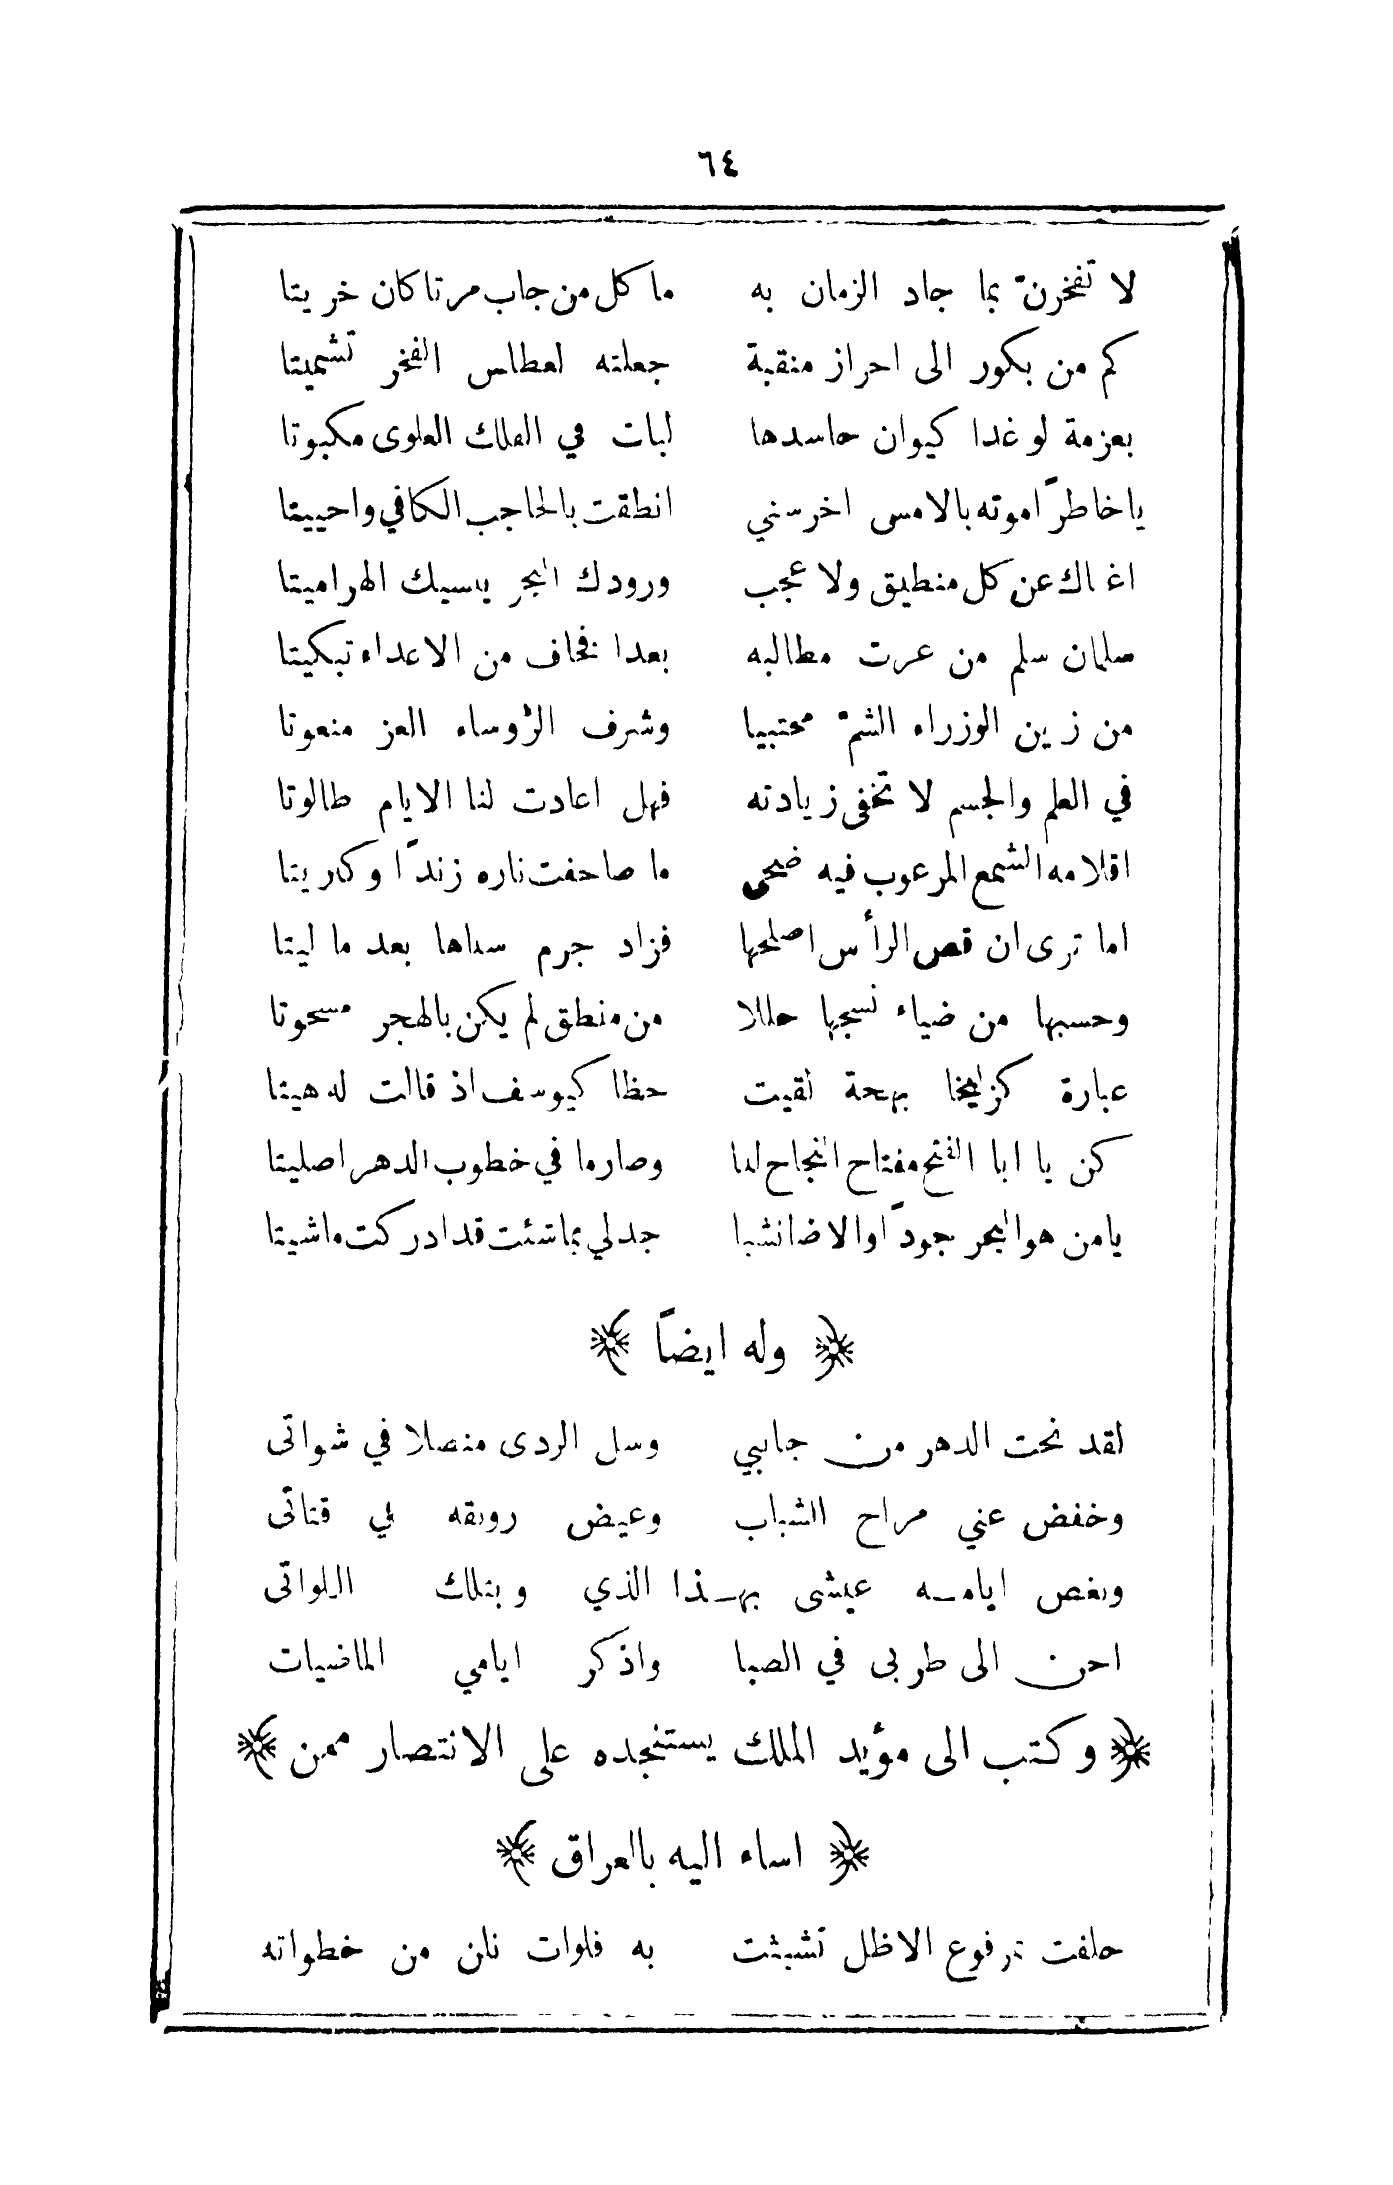 ٦٤
لا تفخرنّ بما جاد الزمان به ما كل من جاب مرتا كان خريتا
كم من بكور الى احراز منقبة جعلته لعطاس الفخر تشميتا
بعزمة لو غدا كيوان حاسدها لبات في الفلك العلوى مكبوتا
يا خاطراً موته بالامس اخرسني انطقت بالحاجب الكافي واحييتا
اغناك عن كل منطيق ولا عجب ورودك البحر ينسيك الهراميتا
سلمان سلم من عرت مطالبه بعدا فخاف من الاعداء تبكيتا
من زين الوزراء الشمّ محتبيا وشرف الرؤساء العز منعوتا
في العلم والجسم لا تخفى زيادته فهل اعادت لنا الايام طالوتا
اقلامه الشمع المرعوب فيه ضحى ما صاحفت ناره زنداً وكاريتا
اما ترى ان قص الرأس اصلحها فزاد جرم سناها بعد ما ليتا
وحسبها من ضياء نسجها حللا من منطق لم يكن بالهجر مسحوتا
عبارة كزليخا بهجة لقيت حظا كيوسف اذ قالت له هيتا
كن يا ابا الفتح مفتاح النجاح لنا وصارما في خطوب الدهر اصليتا
يامن هو البحر جوداً او الاضا نشبا جد لي بما شئت قد ادركت ماشيتا
﴿ وله ايضاً ﴾
لقد نحت الدهر من جانبي وسل الردى منصلا في شواتى
وخفض عني مراح الشباب وعيض رونقه لي قناتى
ونغص ايامـه عيشى بهـذا الذي وبتلك اللواتى
احن الى طربى في الصبا واذكر ايامي الماضيات
﴿ وكتب الى مؤيد الملك يستنجده على الانتصار ممن ﴾
﴿ اساء اليه بالعراق ﴾
حلفت بمرفوع الاظل تشبثت به فلوات نلن من خطواته